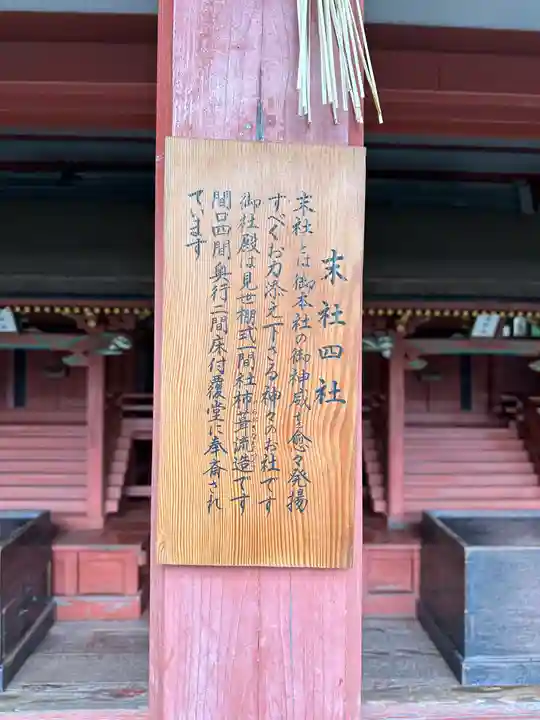 末社四社
末社とは御本社の御神威を愈々発揚
すべくお力添え下さる神々のお社です
御社殿は見世棚式一間社柿葺流造です
間口四間奥行二間床付覆堂に奉斎され
ています